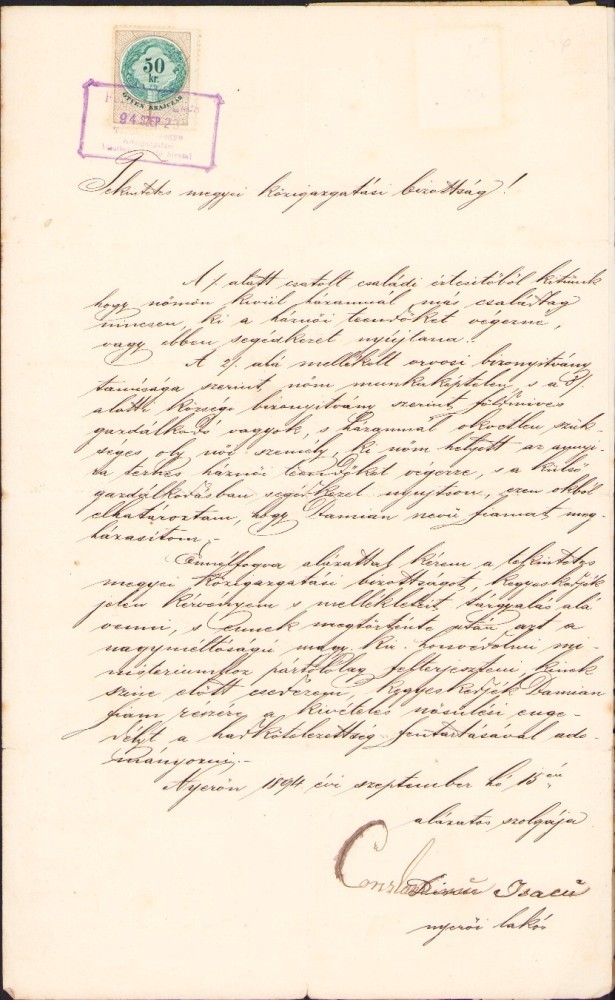 50
kr.
ÖTVEN KRAJCZÁR
94 SZEP 2
Tekintetes megyei közigazgatási bizottság!
A 1/. alatt csatolt családi értesitőből kitünik
hogy nőmön kivül házamnál más családtag
nincsen, ki a háznői teendőket végezne,
vagy ebben segédkezet nyújtana.
A 2/. alá mellékelt orvosi bizonyitvány
tanúsága szerint nőm munkaképtelen, s a 3/.
alatti községi bizonyitvány szerint földmives
gazdálkodó vagyok, s házamnál okvetlen szük-
séges oly női személy, ki nőm helyett az annyi-
ra terhes háznői teendőket végezze, s a külső
gazdálkodásban segédkezet nyujtson, ezen okból
elhatároztam, hogy Damian nevü fiamat meg-
házasitom;
Ennélfogva alázattal kérem a tekintetes
megyei közigazgatási bizottságot, kegyeskedjék
jelen kérvényem s mellékleteit tárgyalás alá
venni, s ennek megtörténte után azt a
nagyméltóságú magy. kir. honvédelmi mi-
nisteriumhoz pártolólag felterjeszteni, kinek
szine előtt esedezem, kegyeskedjék Damian
fiam részére a kivételes nősülési enge-
délyt a hadkötelezettség fentartásával ado-
mányozni.-
Nyerőn 1894 évi szeptember hó 15én
alázatos szolgája
Isacu
nyerői lakós